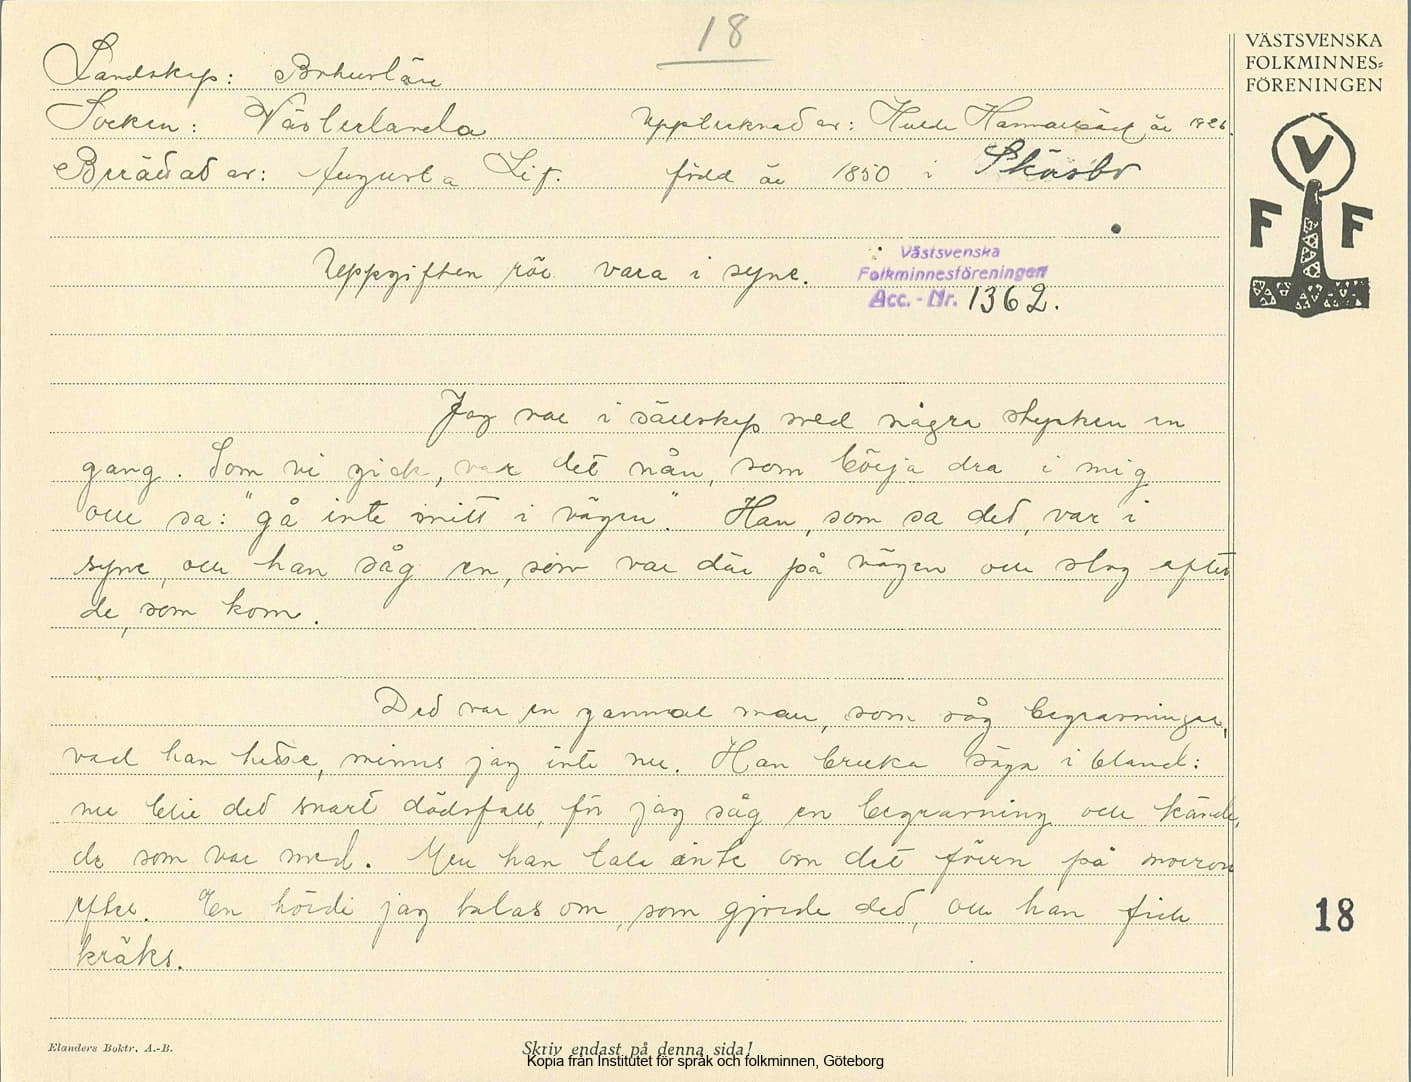 18
VÄSTSVENSKA
FOLKMINNES=
FÖRENINGEN
V
F F
Landskap: Bohuslän
Socken: Västerlanda Upptecknad av: Hulda Hammarbäck år 1926.
Berättad av: Augusta Lij. född år 1850 i Skåsbo
Uppgiften rör vara i syne.
Västsvenska
Folkminnesföreningen
Acc. - Nr. 1362.
Jag var i sällskap med några stycken en
gang. Som vi gick, var det nån, som börja dra i mig
och sa: "gå inte mitt i vägen". Han, som sa det, var i
syne, och han såg en, som var där på vägen och slog efter
de, som kom.
Det var en gammal man, som såg begravningar,
vad han hetse, minns jag inte nu. Han bruka säga i bland:
nu blir det snart dödsfall, för jag såg en begravning och kände,
de som var med. Men han tala inte om det förrn på morron
efter. En hörde jag talas om, som gjorde det, och han fick
kräks.
18
Elanders Boktr. A.-B.
Skriv endast på denna sida!
Kopia från Institutet för språk och folkminnen, Göteborg